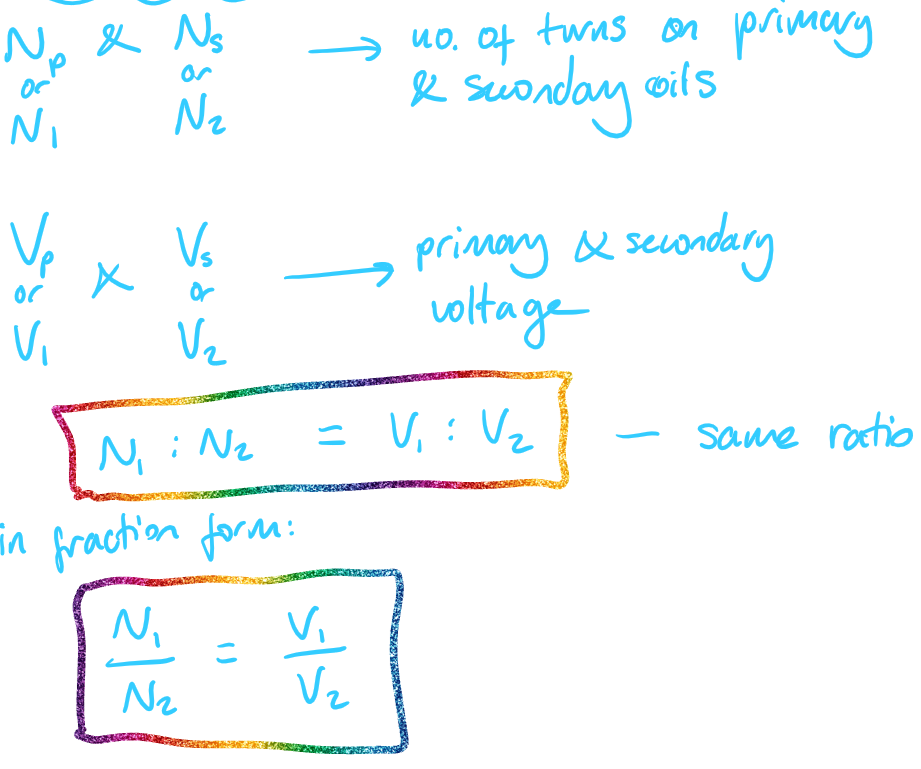 Np & Ns → no. of turns on primary
or or & secondary coils
N1 N2
Vp & Vs → primary & secondary
or or voltage
V1 V2
N1 : N2 = V1 : V2 — same ratio
in fraction form:
N1/N2 = V1/V2